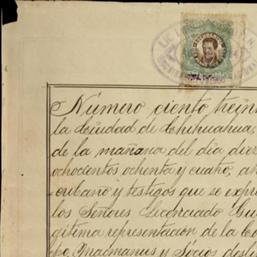 Número ciento trein
la Ciudad de Chihuahua,
de la mañana del dia diez
ochocientos ochenta y cuatro, an
cribano y testigos que se expre
los Señores Licenciado
gitima representacion de la Co
Macmanus y Sócios desli